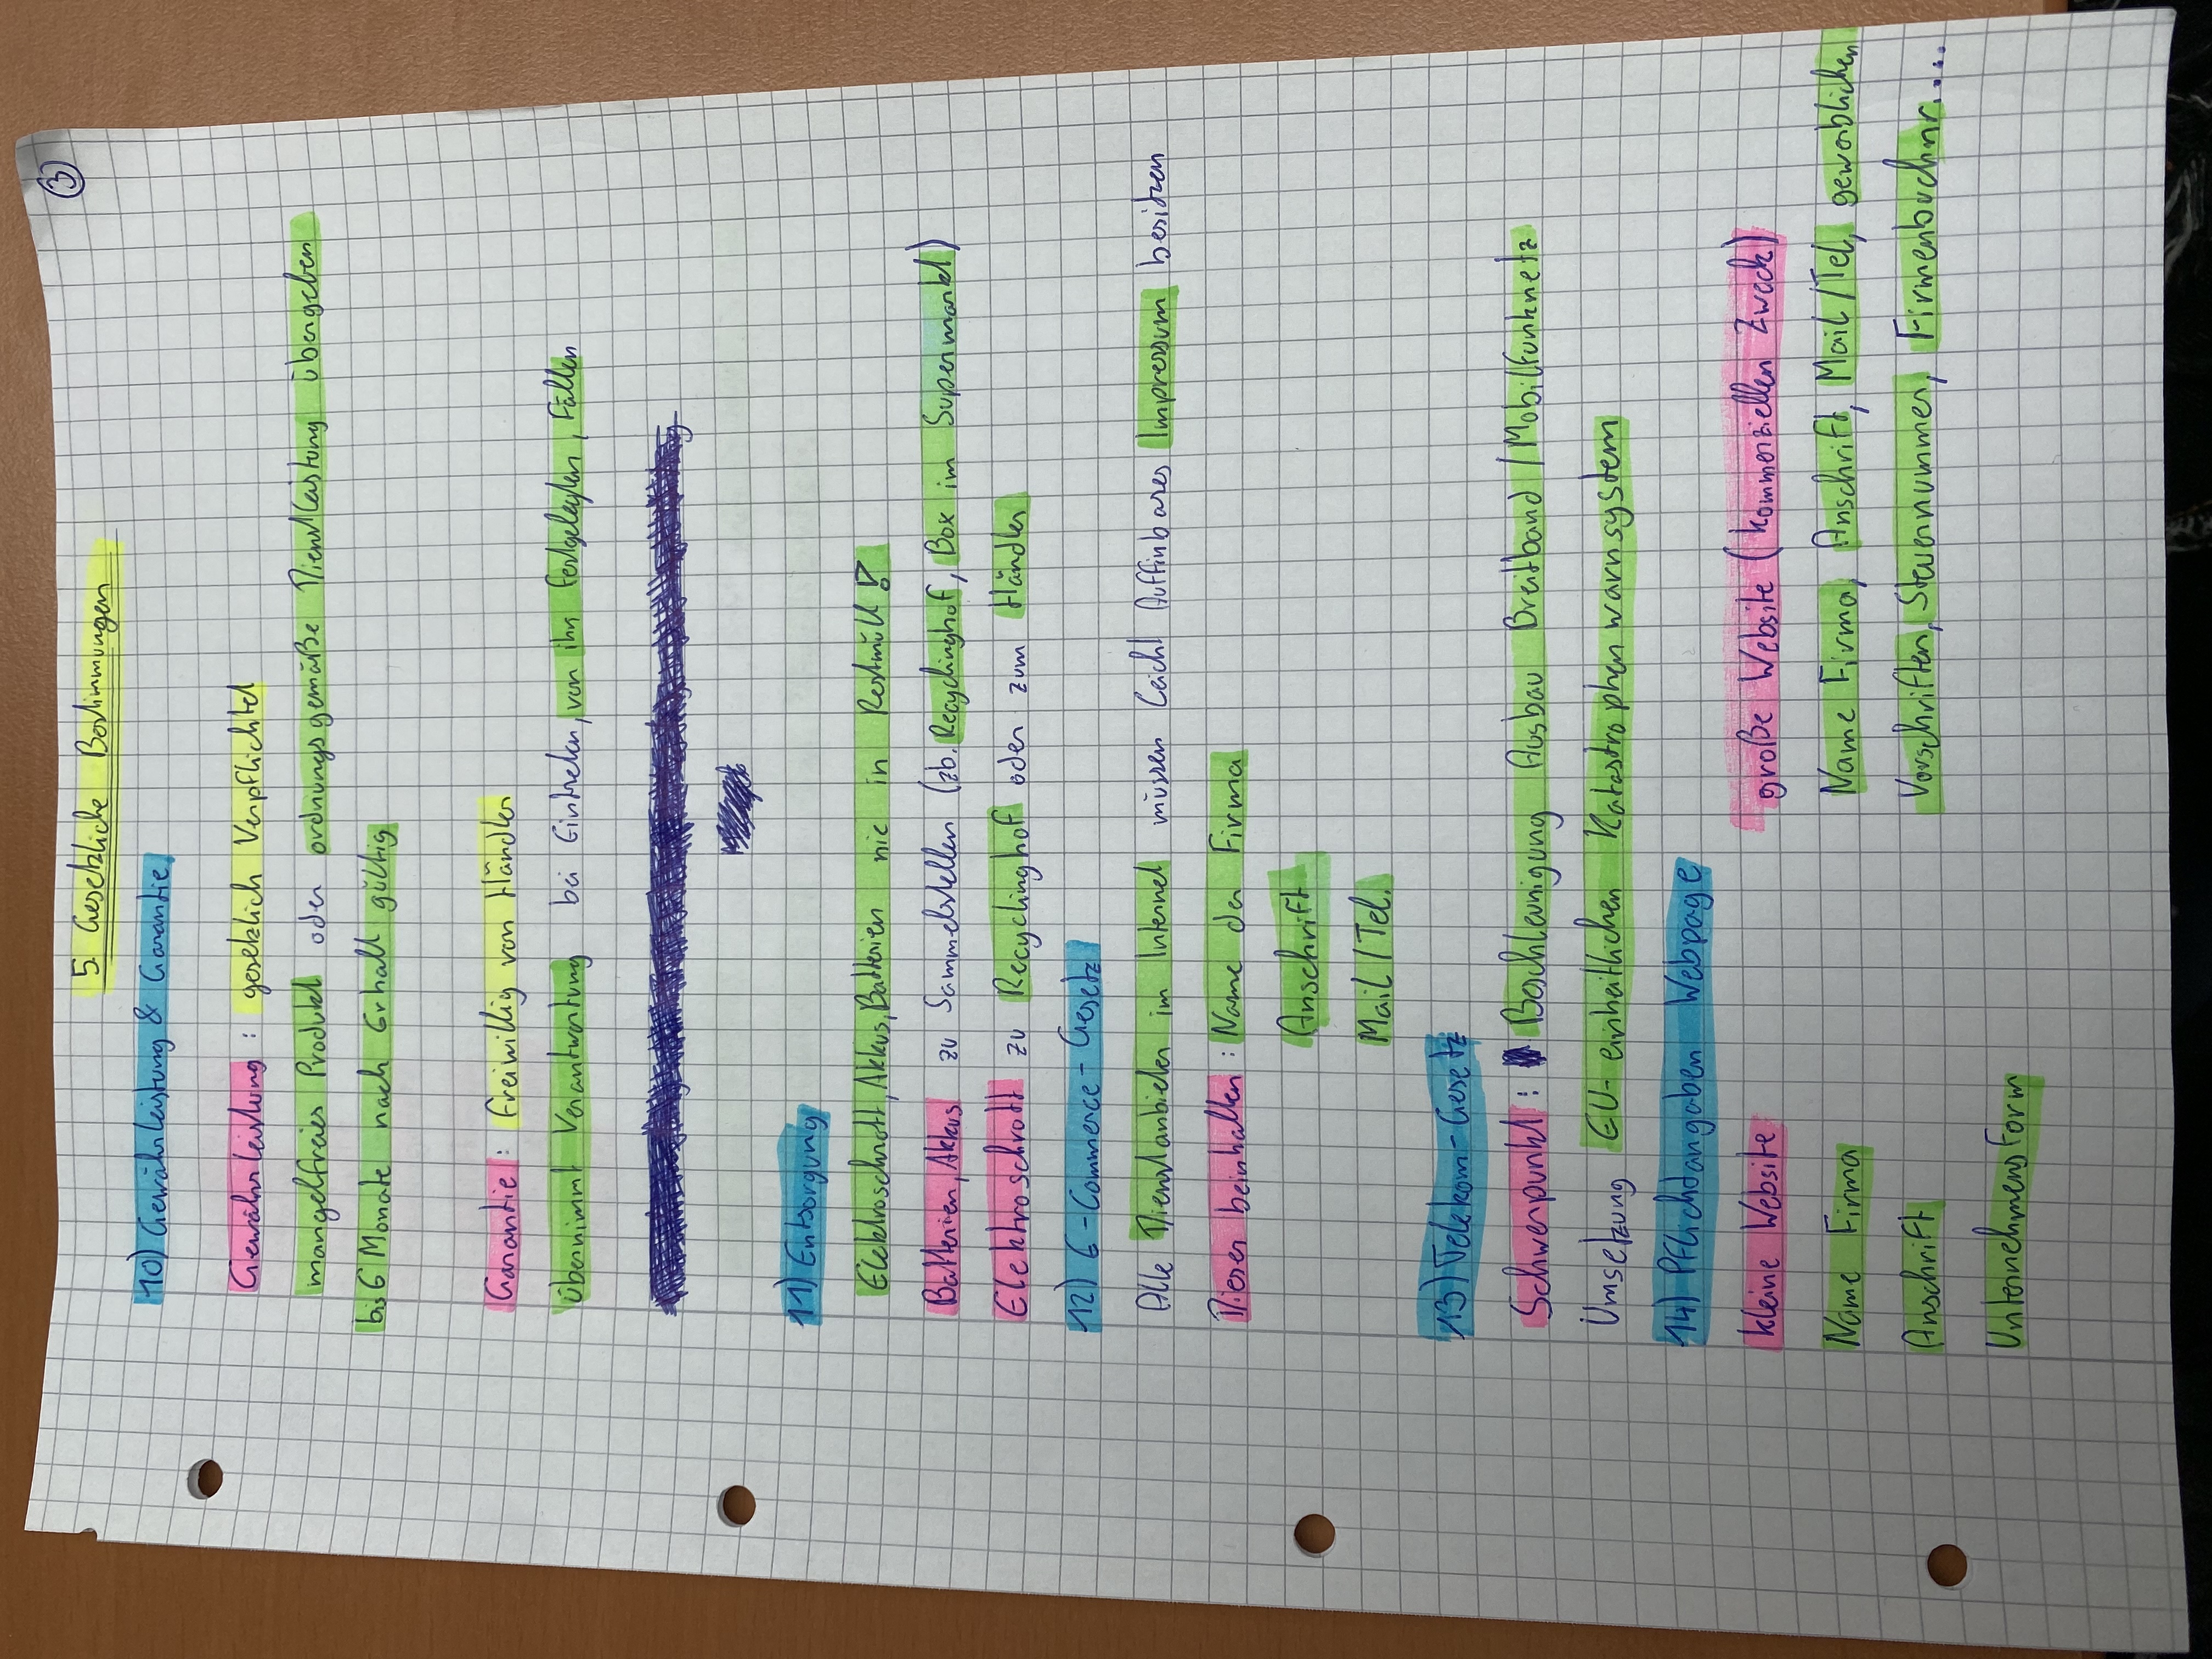 3
5. Gesetzliche Bestimmungen
10) Gewährleistung & Garantie
Gewährleistung : gesetzlich Verpflichtet
mangelfreies Produkt oder ordnungsgemäße Dienstleistung übergeben
bis 6 Monate nach Erhalt gültig
Garantie : Freiwillig von Händler
übernimmt Verantwortung bei Eintreten, von ihn festgelegten, Fällen
11) Entsorgung
Elektroschrott, Akkus, Batterien nie in Restmüll!
Batterien, Akkus zu Sammelstellen (zb. Recyclinghof, Box im Supermarkt)
Elektroschrott zu Recyclinghof oder zum Händler
12) E-Commerce-Gesetz
Alle Dienstanbieter im Internet müssen leicht Auffinbares Impressum besitzen
Dieses beinhalten : Name der Firma
Anschrift
Mail / Tel.
13) Telekom-Gesetz
Schwerpunkt : Beschleunigung Ausbau Breitband / Mobilfunknetz
Umsetzung EU-einheitlichen Katastrophenwarnsystem
14) Pflichtangaben Webpage
kleine Website große Website (kommerziellen Zweck)
Name Firma Name Firma, Anschrift, Mail / Tel, gewerblichen
Anschrift Vorschriften, Steuernummer, Firmenbuchnr....
Unternehmensform